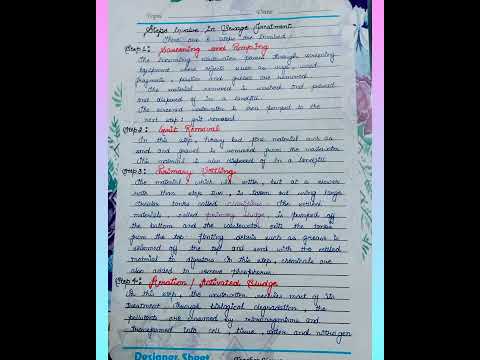 Topic Date
Steps Involve in Sewage Treatment
There are 8 steps are Involved
Step 1: Screening and Pumping
The incoming wastewater passes through screening
equipment where objects such as rags, wood
fragments, plastics and grease are removed.
The material removed is washed and pressed
and disposed of in a landfill.
The screened wastewater is then pumped to the
next step: grit removal
Step 2: Grit Removal
In this step, heavy but fine material such as
sand and gravel is removed from the wastewater
The material is also disposed of in a landfill
Step 3: Primary Settling
The material, which will settle, but at a slower
rate than step two, is taken out using large
circular tanks called clarifiers. The settled
material, called primary sludge, is pumped off
the bottom and the wastewater exits the tank
from the top. floating debris such as grease is
skimmed off the top and send with the settled
material to digesters. In this step, chemicals are
also added to remove phosphorus.
Step 4: Aeration / Activated Sludge
In this step, the wastewater receives most of its
treatment. Through biological degradation, the
pollutants are consumed by microorganisms and
transformed into cell, tissue, water and nitrogen
Designer Sheet